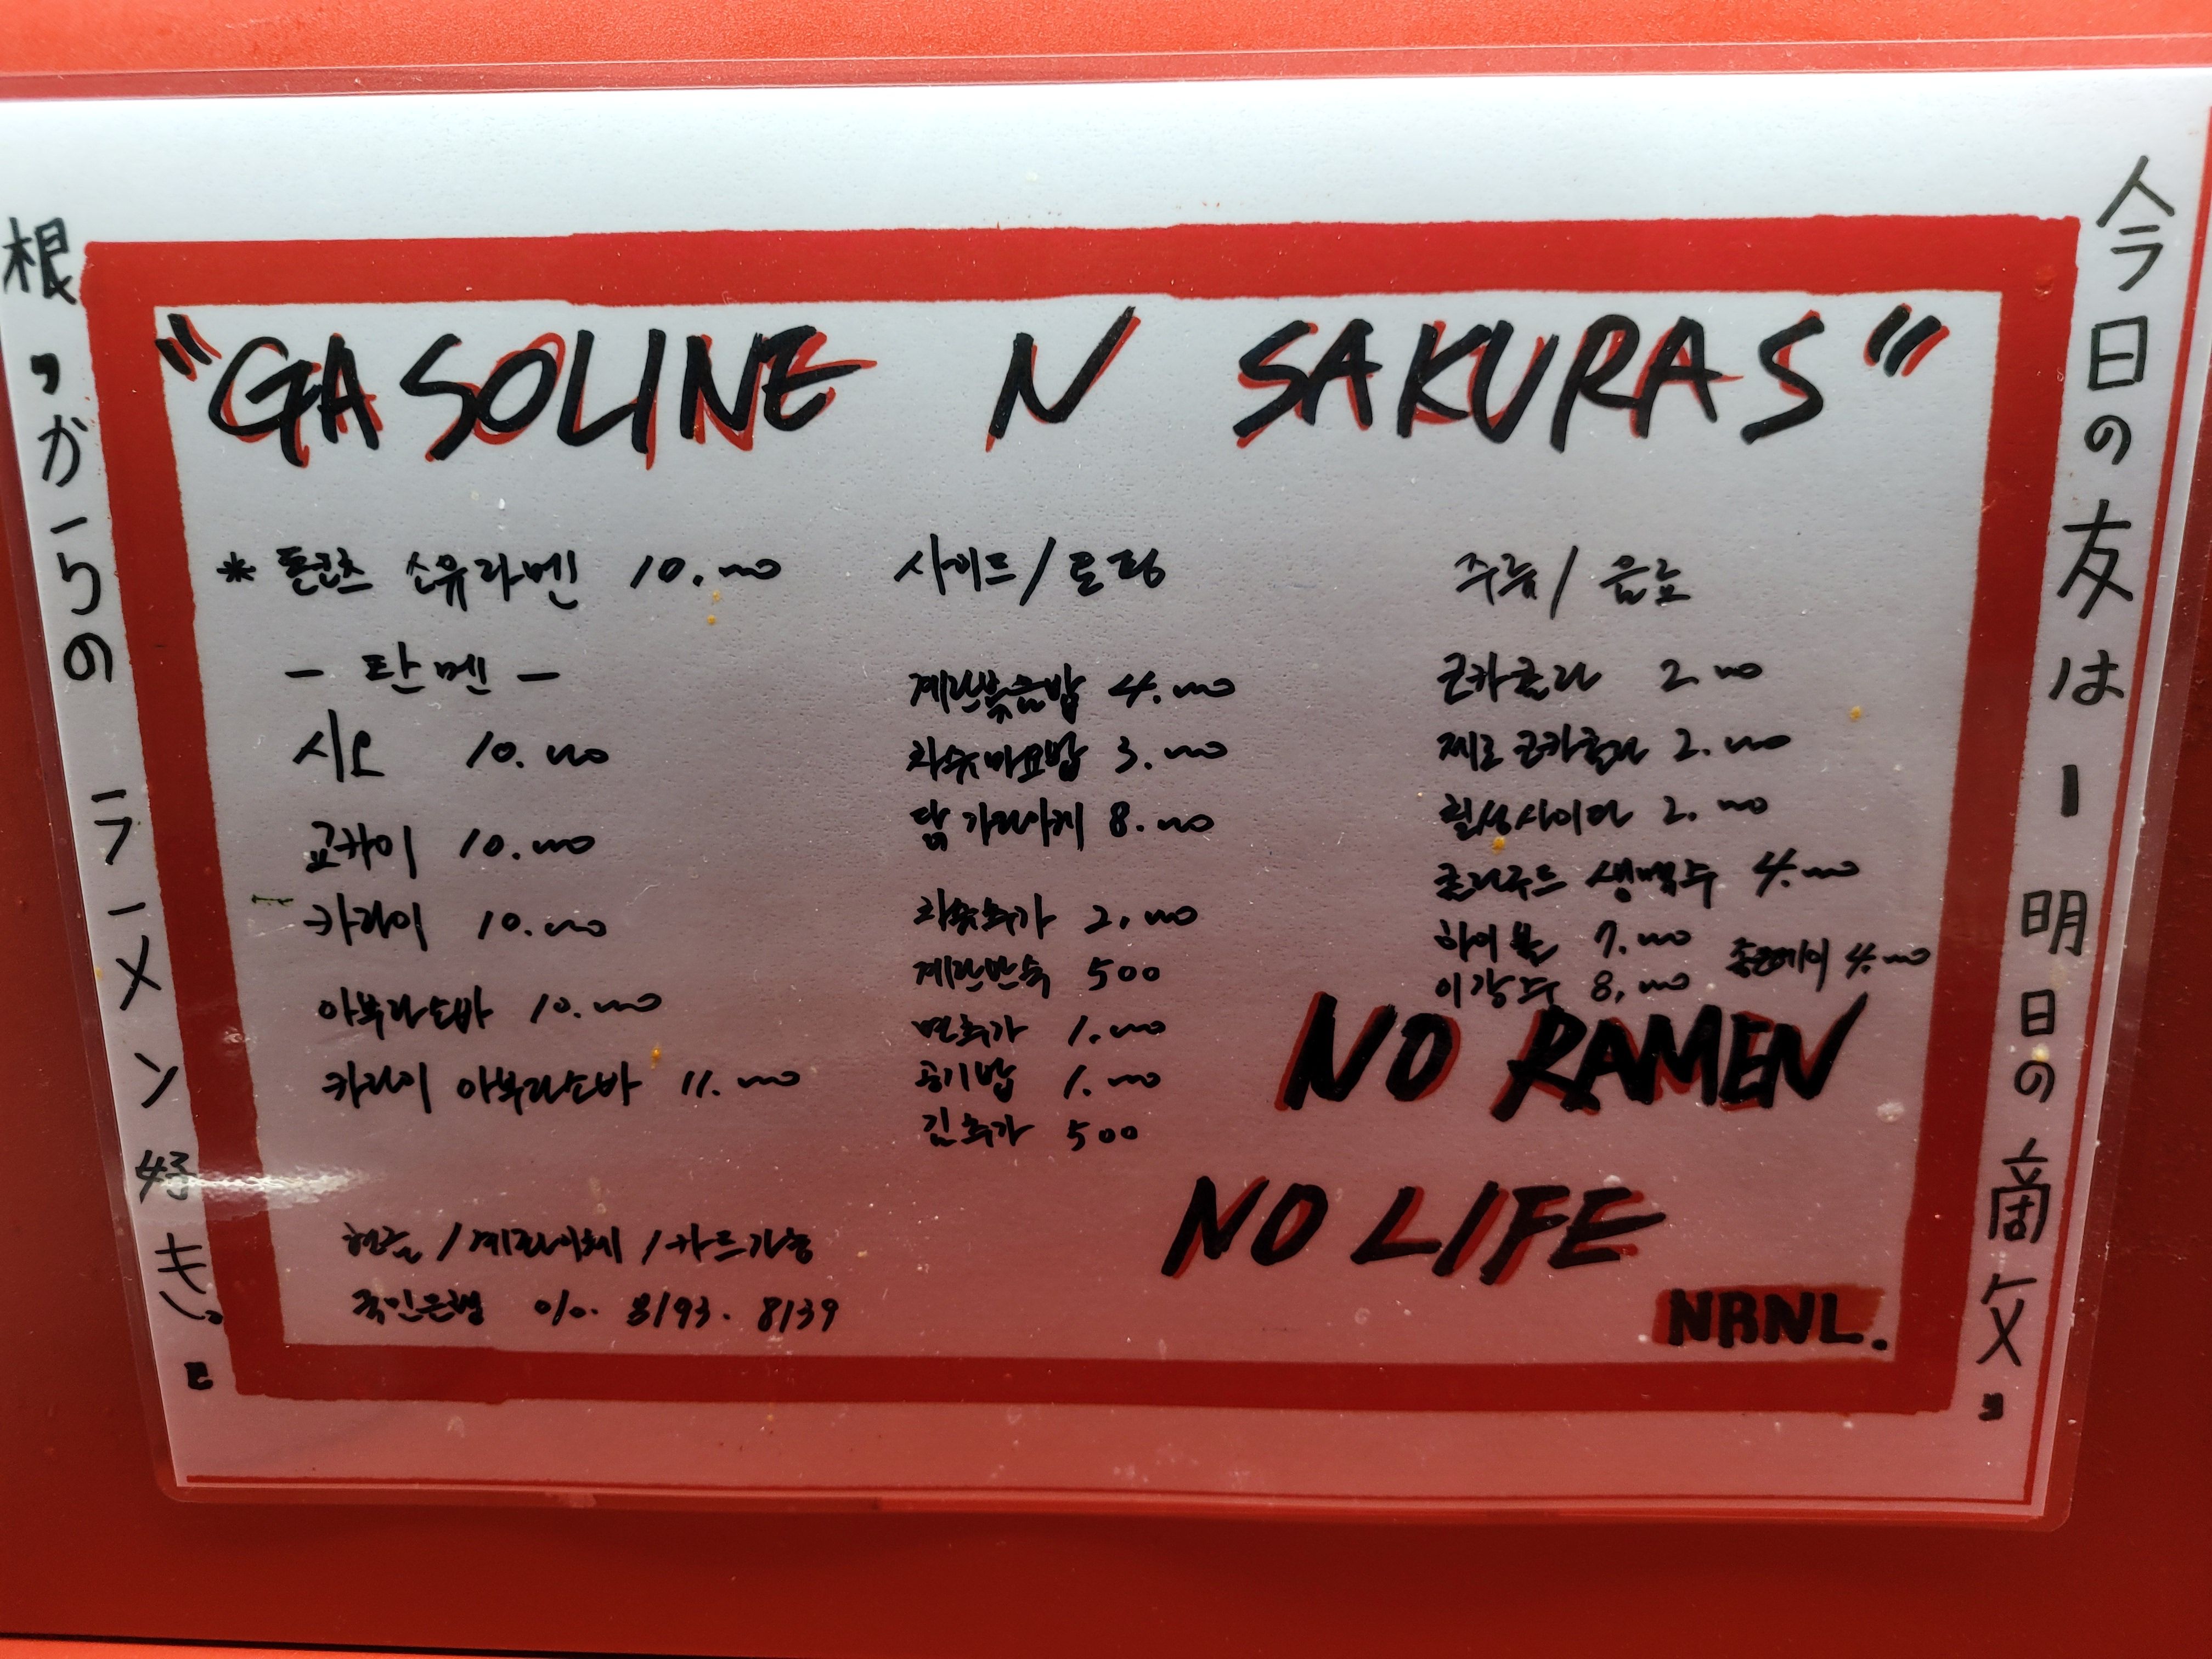 "GASOLINE N SAKURAS"
* 돈코츠 쇼유라멘 10.000
- 탄멘 -
시오 10.000
교카이 10.000
카라이 10.000
아부라소바 10.000
카라이 아부라소바 11.000
현금 / 계좌이체 / 카드가능
국민은행 010. 8193. 8139
사이드 / 토핑
계란볶음밥 4.000
차슈마요밥 3.000
닭 가라아게 8.000
차슈추가 2.000
계란반숙 500
면추가 1.000
공기밥 1.000
김추가 500
주류 / 음료
코카콜라 2.000
제로 코카콜라 2.000
칠성사이다 2.000
클라우드 생맥주 4.000
하이볼 7.000
4.000
이강주 8.000
NO RAMEN
NO LIFE
NRNL.
今日の友は ー 明日の商攵"
根, か-らの ラーメン 好き。